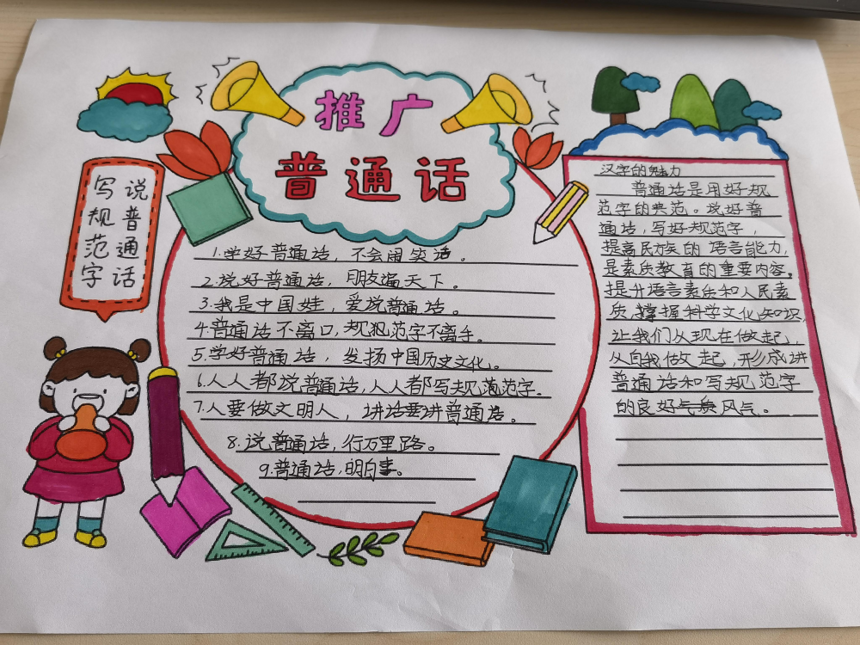 推广
普通话
说普通话
写规范字
1.学好普通话，不会闹笑话。
2.说好普通话，朋友遍天下。
3.我是中国娃，爱说普通话。
4.普通话不离口，规范字不离手。
5.学好普通话，发扬中国历史文化。
6.人人都说普通话，人人都写规范字。
7.人要做文明人，讲话要讲普通话。
8.说普通话，行万里路。
9.普通话，明白事。
汉字的魅力
普通话是用好规
范字的典范。说好普
通话，写好规范字，
提高民族的语言能力，
是素质教育的重要内容。
提升语言素质和人民素
质，掌握科学文化知识，
让我们从现在做起，
从自我做起，形成讲
普通话和写规范字
的良好风气。